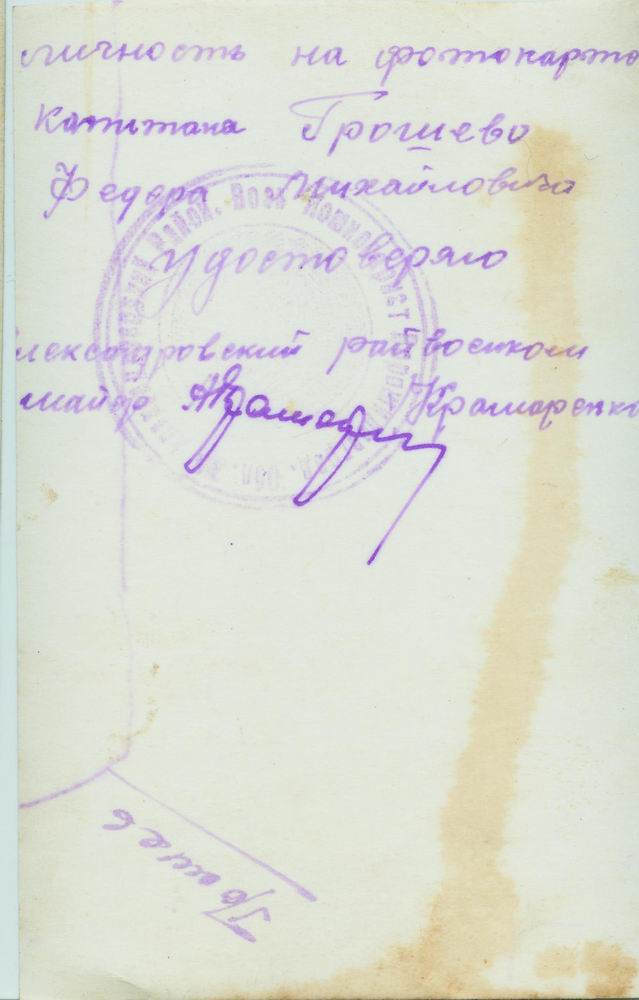 личность на фотокарто
капитана Грошево
Федора Михайловича
удостоверяю
лександровский райвоенком
майор Крамаренко
Грошев